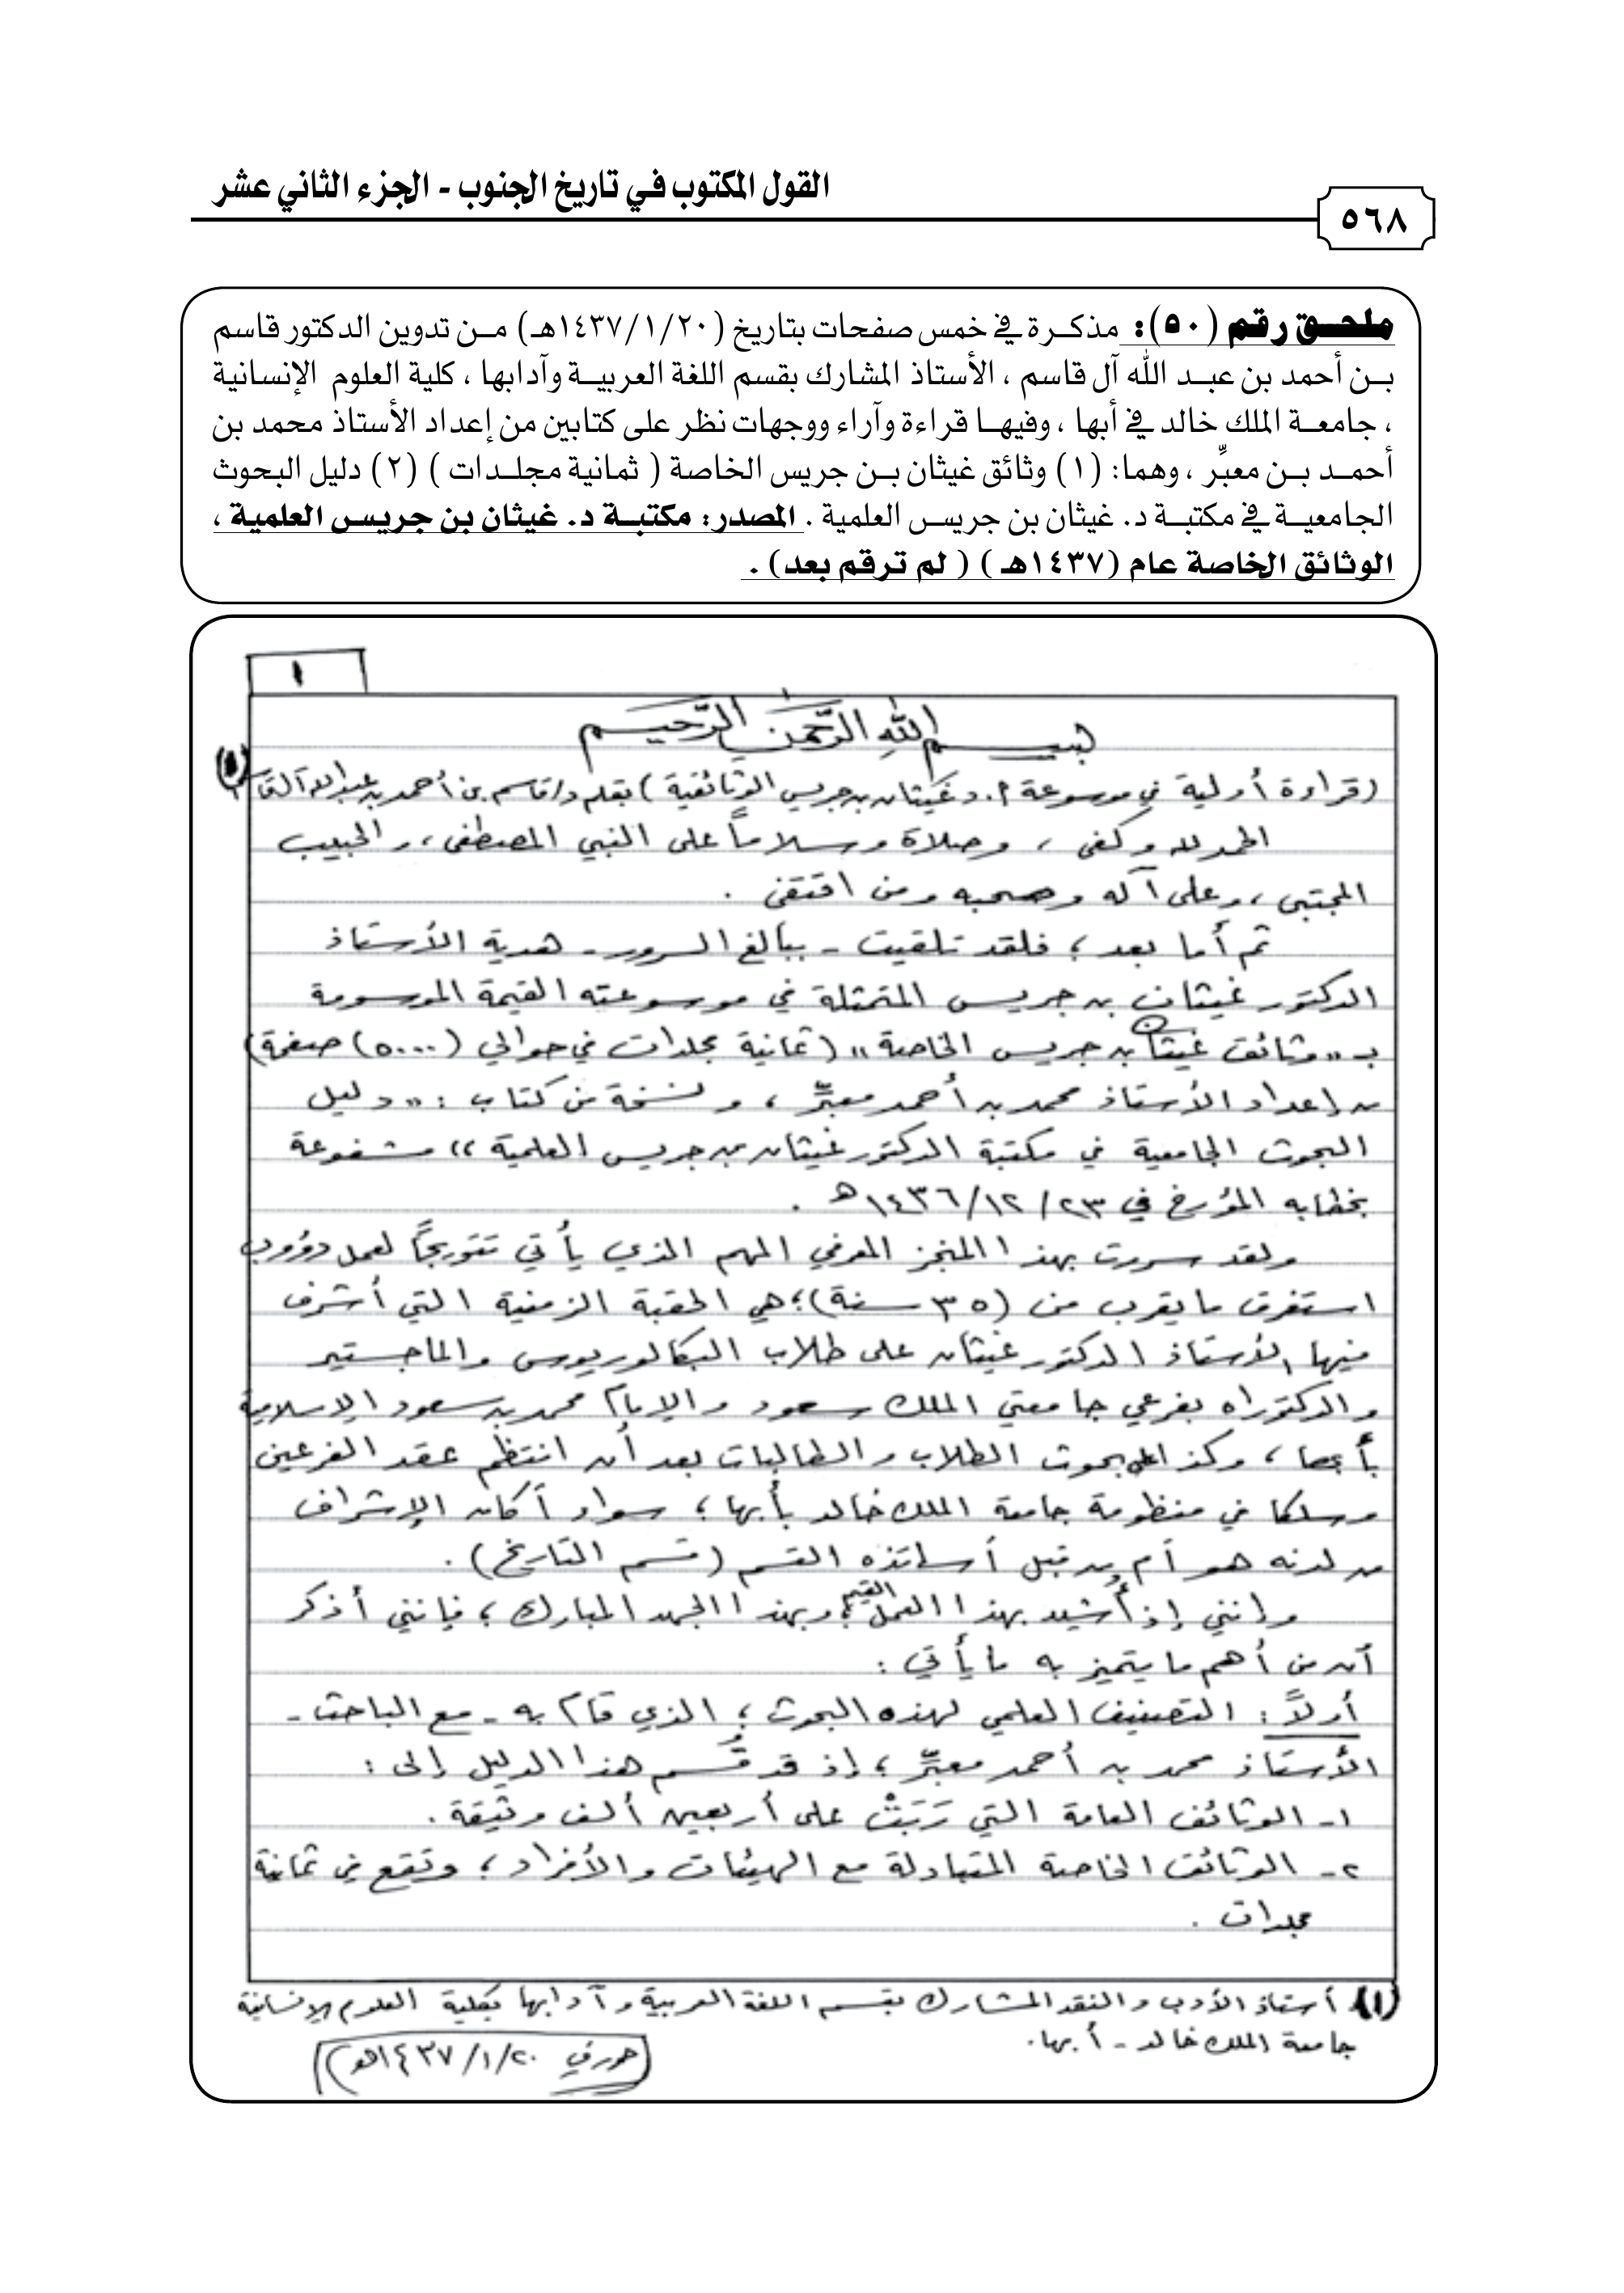 القول المكتوب في تاريخ الجنوب - الجزء الثاني عشر
٥٦٨
ملحق رقم (٥٠): مذكرة في خمس صفحات بتاريخ (١٤٣٧/١/٢٠هـ) من تدوين الدكتور قاسم
بن أحمد بن عبد الله آل قاسم ، الأستاذ المشارك بقسم اللغة العربية وآدابها ، كلية العلوم الإنسانية
، جامعة الملك خالد في أبها ، وفيها قراءة وآراء ووجهات نظر على كتابين من إعداد الأستاذ محمد بن
أحمد بن معبِّر ، وهما: (١) وثائق غيثان بن جريس الخاصة ( ثمانية مجلدات ) (٢) دليل البحوث
الجامعية في مكتبة د. غيثان بن جريس العلمية . المصدر: مكتبة د. غيثان بن جريس العلمية ،
الوثائق الخاصة عام (١٤٣٧هـ) ( لم ترقم بعد) .
١
بسم الله الرَّحمن الرَّحيم
(قراءة أولية في موسوعة أ.د غيثان بن جريس الوثائقية) بقلم د/قاسم بن أحمد بن عبدالله آل قاسم (١)
الحمد لله وكفى ، وصلاة وسلاماً على النبي المصطفى ، والحبيب
المجتبى ، وعلى آله وصحبه ومن اقتفى .
ثم أما بعد ؛ فلقد تلقيت - ببالغ السرور - هدية الأستاذ
الدكتور غيثان بن جريس المتمثلة في موسوعته القيمة الموسومة
بـ "وثائق غيثان بن جريس الخاصة" (ثمانية مجلدات في حوالي (٥٠٠٠) صفحة)
من إعداد الأستاذ محمد بن أحمد معبِّر ، ونسخة من كتاب : "دليل
البحوث الجامعية في مكتبة الدكتور غيثان بن جريس العلمية" مشفوعة
بخطابه المؤرخ في ٢٣/ ١٢/ ١٤٣٦هـ .
ولقد سررت بهذا المنجز المعرفي المهم الذي يأتي تتويجاً لعمل دؤوب
استغرق ما يقرب من (٣٥ سنة)؛ هي الحقبة الزمنية التي أشرف
فيها الأستاذ الدكتور غيثان على طلاب البكالوريوس والماجستير
والدكتوراه بفرعي جامعتي الملك سعود والإمام محمد بن سعود الإسلامية
بأبها ، وكذا بحوث الطلاب والطالبات بعد أن انتظم عقد الفرعين
وسلكا في منظومة جامعة الملك خالد بأبها ؛ سواء أكان الإشراف
من لدنه هو أم من قبل أساتذه القسم (قسم التاريخ) .
وإنني إذ أشيد بهذا العمل القيم ؛ وبهذا الجهد المبارك ؛ فإنني أذكر
أن من أهم ما يتميز به ما يأتي :
أولاً : التصنيف العلمي لهذه البحوث ؛ الذي قام به - مع الباحث -
الأستاذ محمد بن أحمد معبِّر ؛ إذ قد قُسم هذا الدليل إلى :
١- الوثائق العامة التي رَبَتْ على أربعين ألف وثيقة .
٢- الوثائق الخاصة المتبادلة مع الهيئات والأفراد ؛ وتقع في ثمانية
مجلدات .
(١) أستاذ الأدب والنقد المشارك بقسم اللغة العربية وآدابها بكلية العلوم الإنسانية
جامعة الملك خالد - أبها.
حرر في ٢٠/١/١٤٣٧هـ